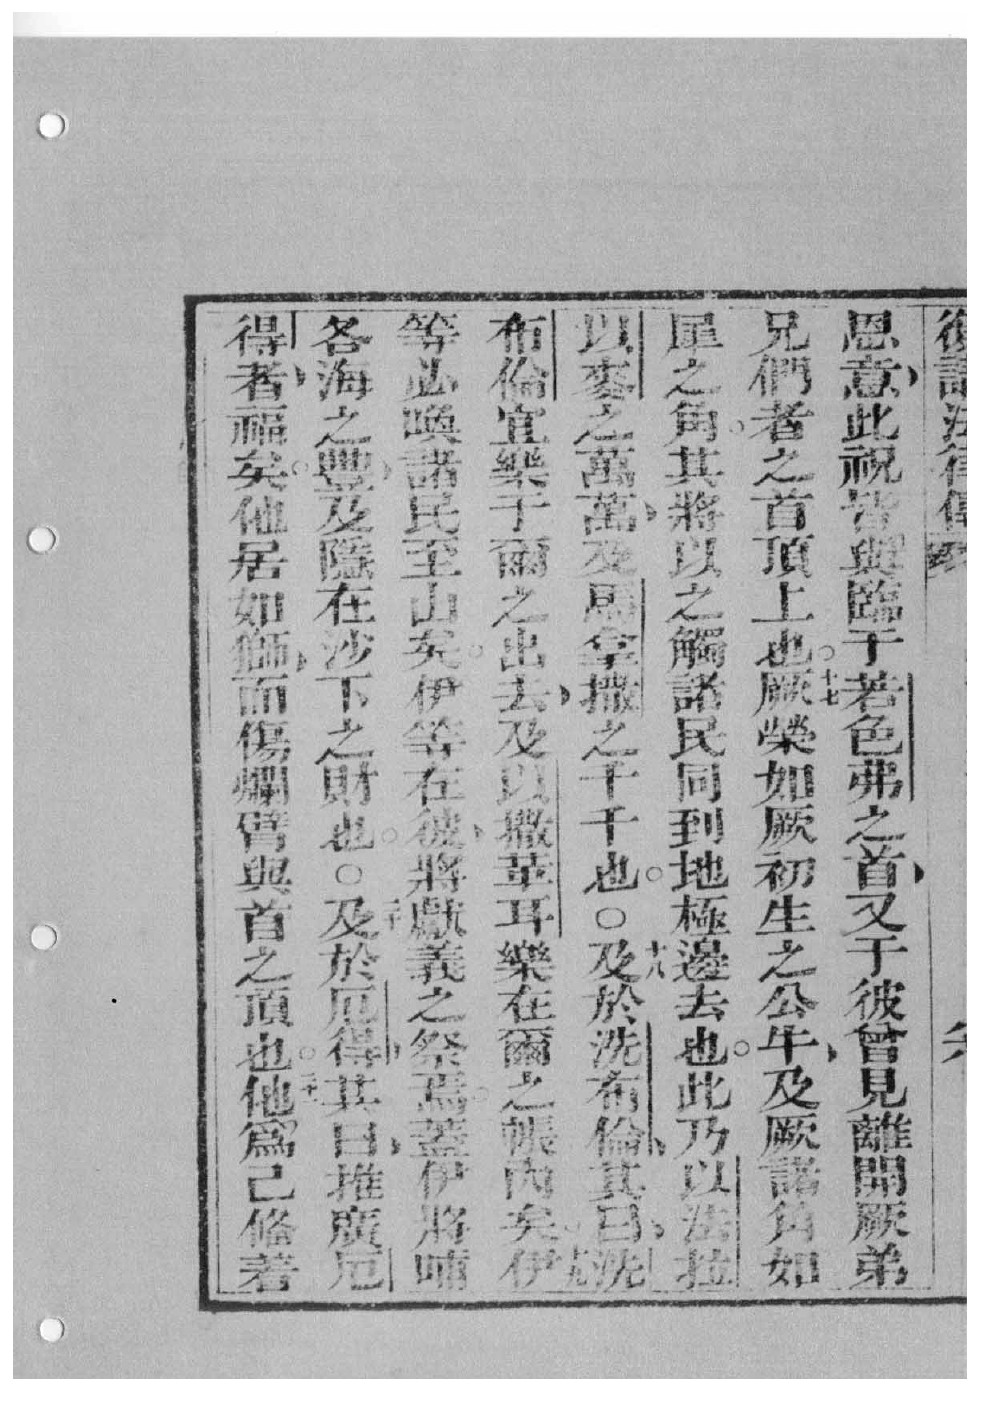 復講法律傳
恩意此祝皆與臨于若色弗之首又于彼曾見離開厥弟
兄們者之首頂上也十七厥榮如厥初生之公牛及厥諸角如
崖之角其將以之觸諸民同到地極邊去也此乃以法拉
以麥之萬萬及馬拿撒之千千也○十八及於洗布倫其曰洗
布倫宜樂于爾之出去及以撒革耳樂在爾之帳內矣十九伊
等必喚諸民至山矣伊等在彼將獻義之祭焉蓋伊將哺
各海之豐及隱在沙下之財也○二十及於厄得其曰推廣厄
得者福矣他居如獅而傷爛臂與首之頂也二十一他為己俻著